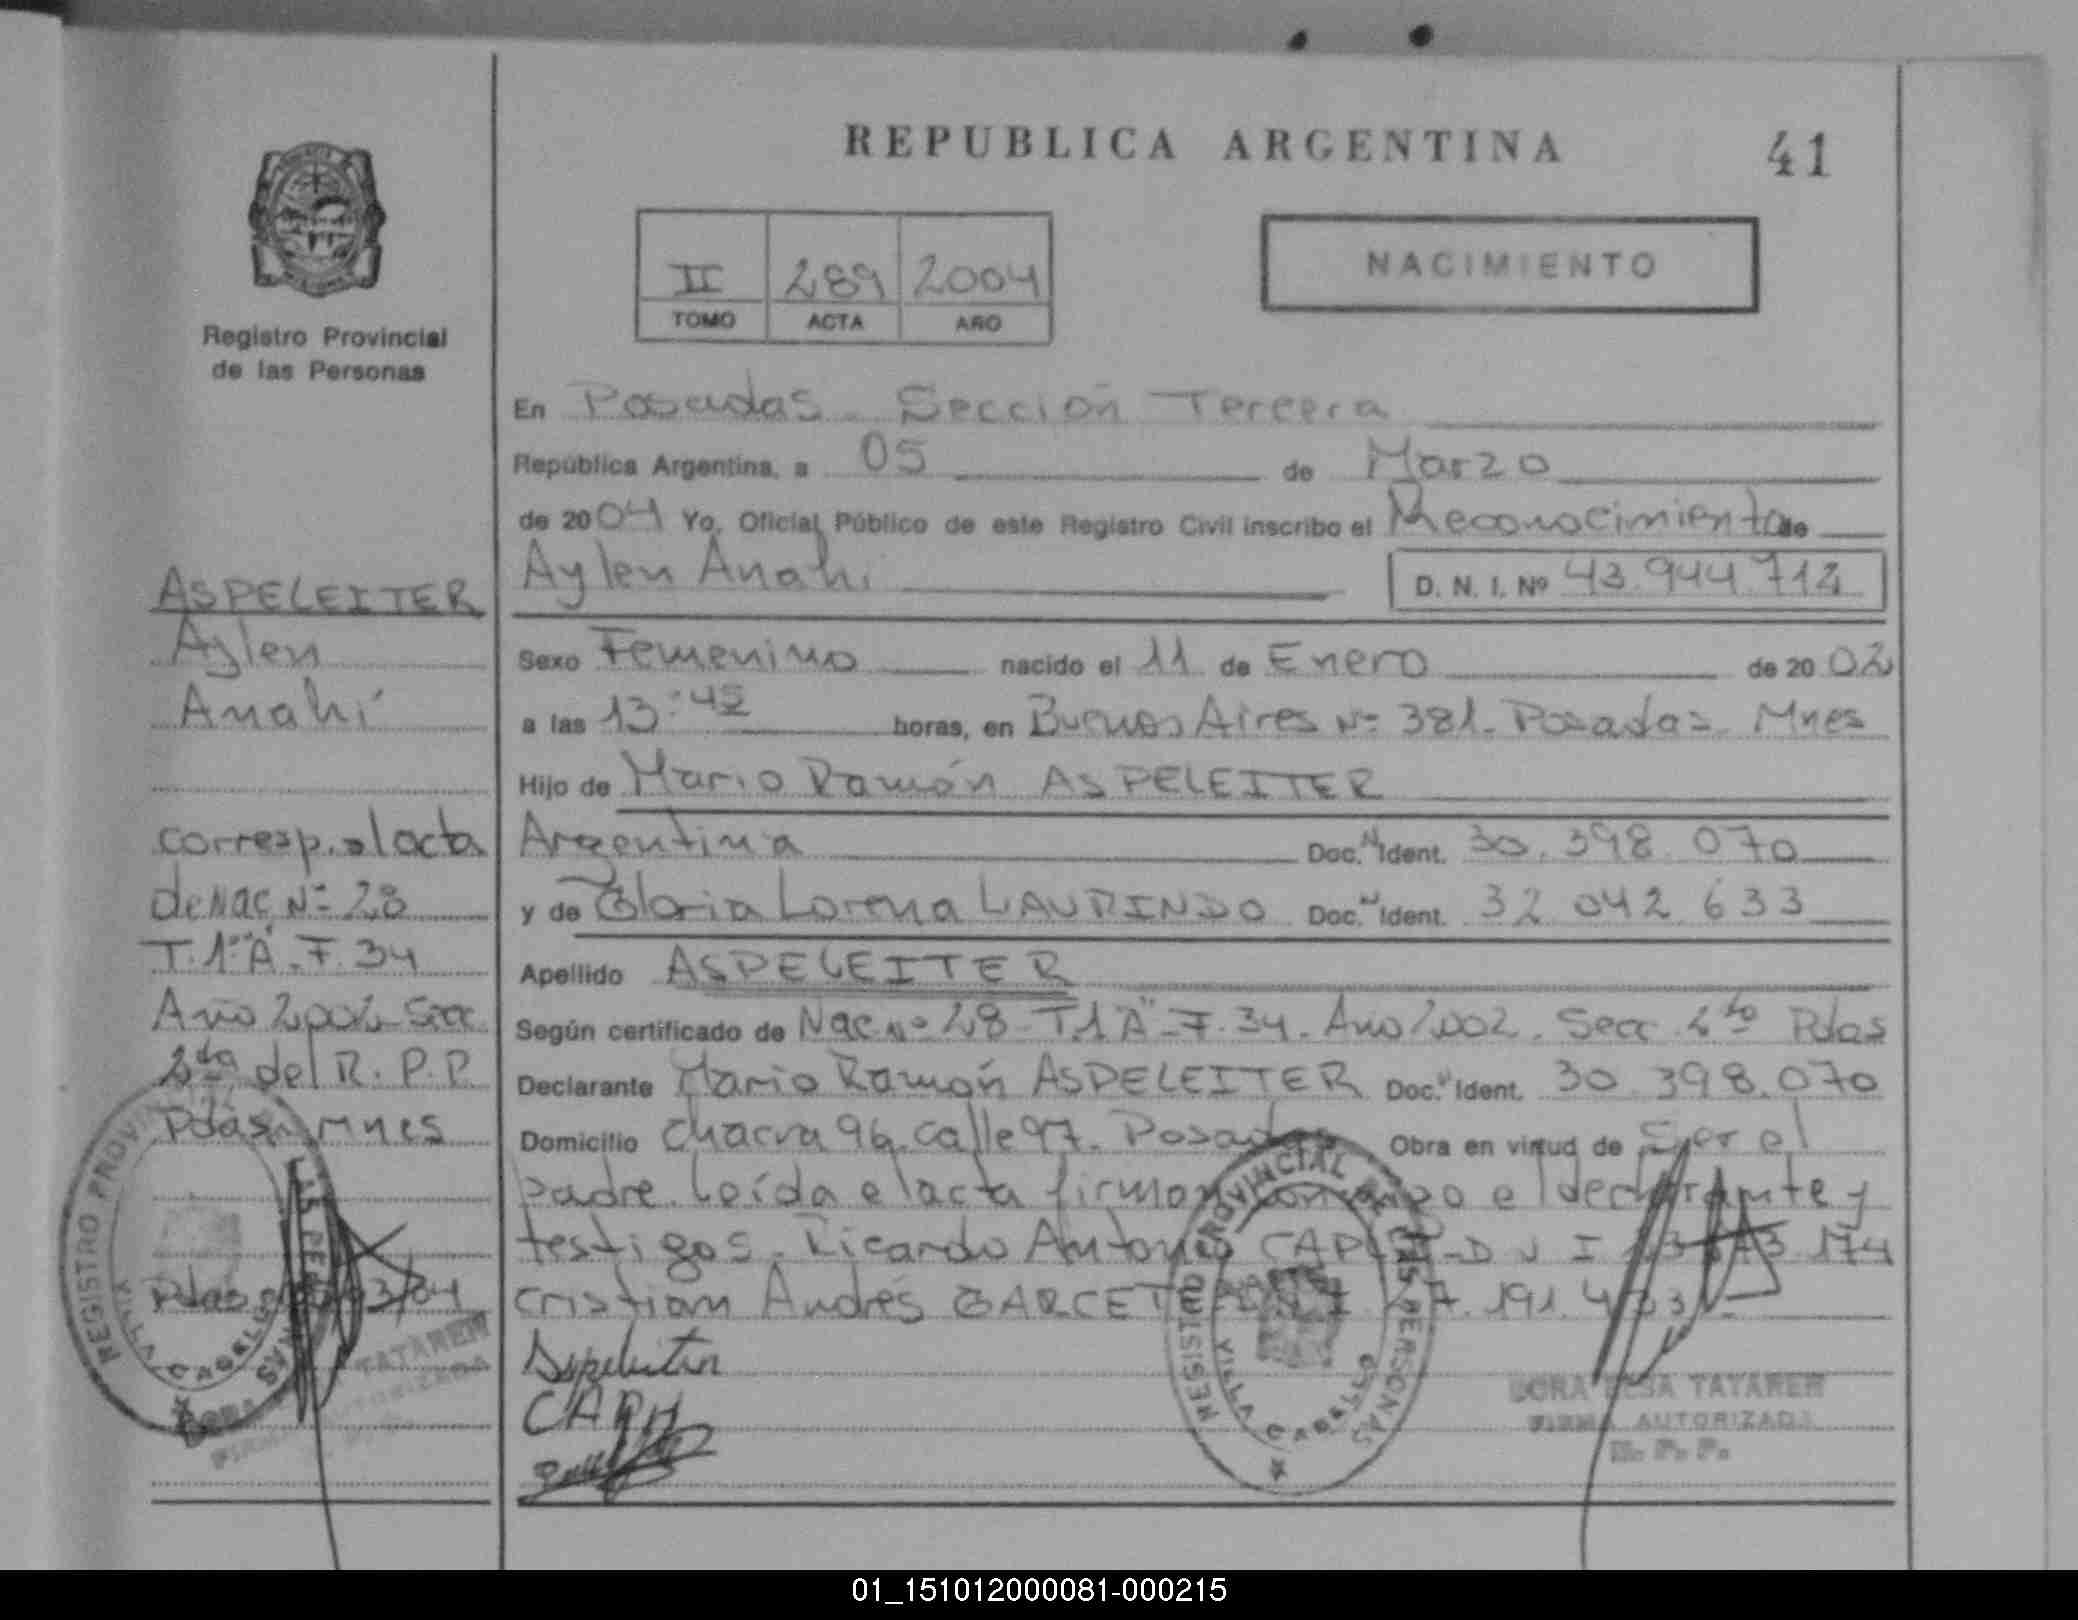 REPUBLICA ARGENTINA
41
Registro Provincial
de las Personas
II 289 2004
TOMO ACTA AÑO
NACIMIENTO
En Posadas - Sección Tercera
República Argentina, a 05 de Marzo
de 2004 Yo, Oficial Público de este Registro Civil inscribo el Reconocimiento de
Aylen Anahi D. N. I. Nº 43.944.714
Sexo Femenino nacido el 11 de Enero de 2002
a las 13:45 horas, en Buenos Aires Nº 381. Posadas - Mnes
Hijo de Mario Ramón ASPELEITER
Argentina Doc. Ident. 30.398.070
y de Gloria Lorena LAURINDO Doc. Ident. 32 042 633
Apellido ASPELEITER
Según certificado de Nac Nº 28 - T.1"A"-F.34. Año 2002. Secc. Pdas
Declarante Mario Ramón ASPELEITER Doc. Ident. 30.398.070
Domicilio chacra 96 calle 97. Posadas Obra en virtud de Ser el
padre. Leída el acta firman conmigo el declarante y
testigos. Ricardo Antonio D N I 174
Cristian Andrés 191.
ASPELEITER
Aylen
Anahí
corresp. al acta
de Nac Nº 28
T.1º"A"-F.34
Año 2002 Secc
2da del R.P.P.
Pdas Mnes
Pdas 03/04
REGISTRO PROVINCIAL DE LAS PERSONAS
VILLA CABELLO
TATAREN
REGISTRO PROVINCIAL DE LAS PERSONAS
VILLA CABELLO
DORA ELSA TATAREN
FIRMA AUTORIZADA
R. P. P.
01_151012000081-000215